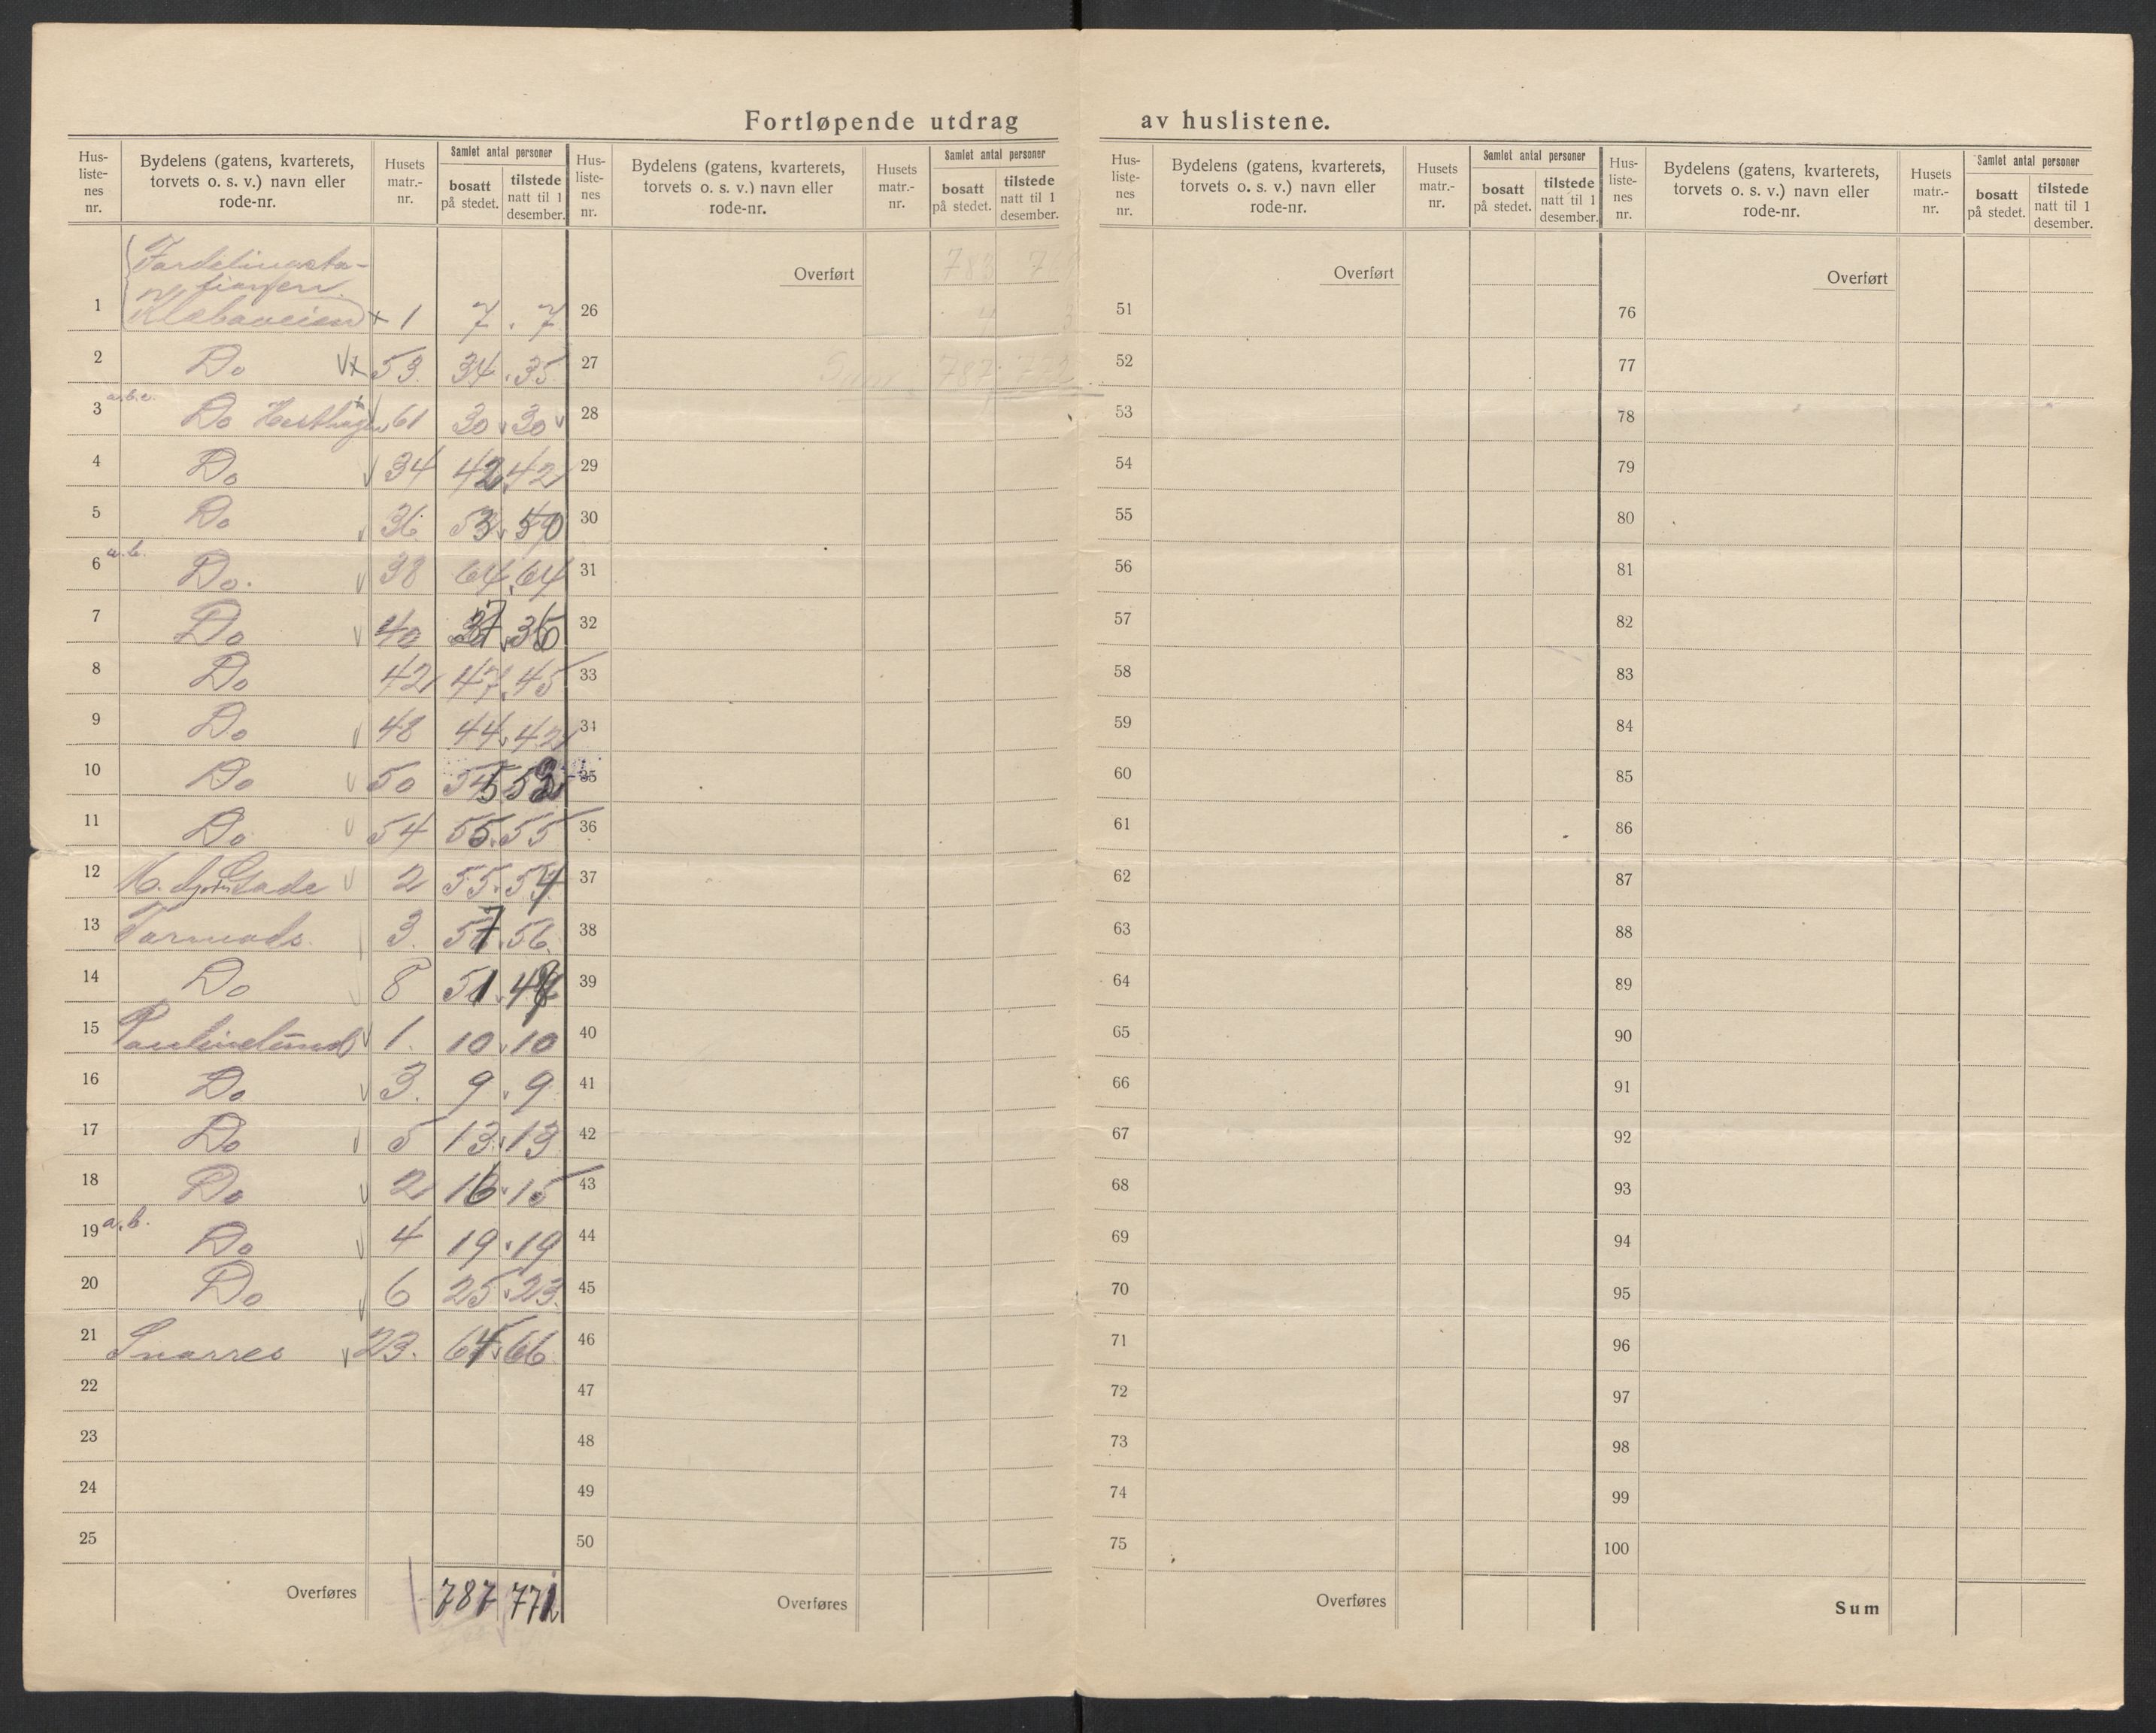 Fortløpende utdrag av huslistene.
Hus-liste-nes nr. | Bydelens (gatens, kvarterets, torvets o. s. v.) navn eller rode-nr. | Husets matr.-nr. | Samlet antal personer | bosatt på stedet. | tilstede natt til 1 desember.
1 Klæbuveien 1 7 7
2 Do 53 34 35
3 a.b.c. Do 61 30 30
4 Do 34 42 42
5 Do 36 53 50
6 a.b. Do. 38 64 64
7 Do 40 37 36
8 Do 42 47 45
9 Do 48 44 42
10 Do 50 55 53
11 Do 54 55 55
12 2 55 54
13 Tormods 3. 57 56
14 Do 8 51
15 Paulinelund 1. 10 10
16 Do 3. 9 9
17 Do 5 13 13
18 Do 2 16 15
19 a.b. Do 4 19 19
20 Do 6 25 23
21 Snarres 23. 64 66
22
23
24
25
Overføres 787 772
Hus-liste-nes nr. | Bydelens (gatens, kvarterets, torvets o. s. v.) navn eller rode-nr. | Husets matr.-nr. | Samlet antal personer | bosatt på stedet. | tilstede natt til 1 desember.
Overført 783 769
26 4 3
27 Sum 787 772
28
29
30
31
32
33
34
35
36
37
38
39
40
41
42
43
44
45
46
47
48
49
50
Overføres
Hus-liste-nes nr. | Bydelens (gatens, kvarterets, torvets o. s. v.) navn eller rode-nr. | Husets matr.-nr. | Samlet antal personer | bosatt på stedet. | tilstede natt til 1 desember.
Overført
51
52
53
54
55
56
57
58
59
60
61
62
63
64
65
66
67
68
69
70
71
72
73
74
75
Overføres
Hus-liste-nes nr. | Bydelens (gatens, kvarterets, torvets o. s. v.) navn eller rode-nr. | Husets matr.-nr. | Samlet antal personer | bosatt på stedet. | tilstede natt til 1 desember.
Overført
76
77
78
79
80
81
82
83
84
85
86
87
88
89
90
91
92
93
94
95
96
97
98
99
100
Sum